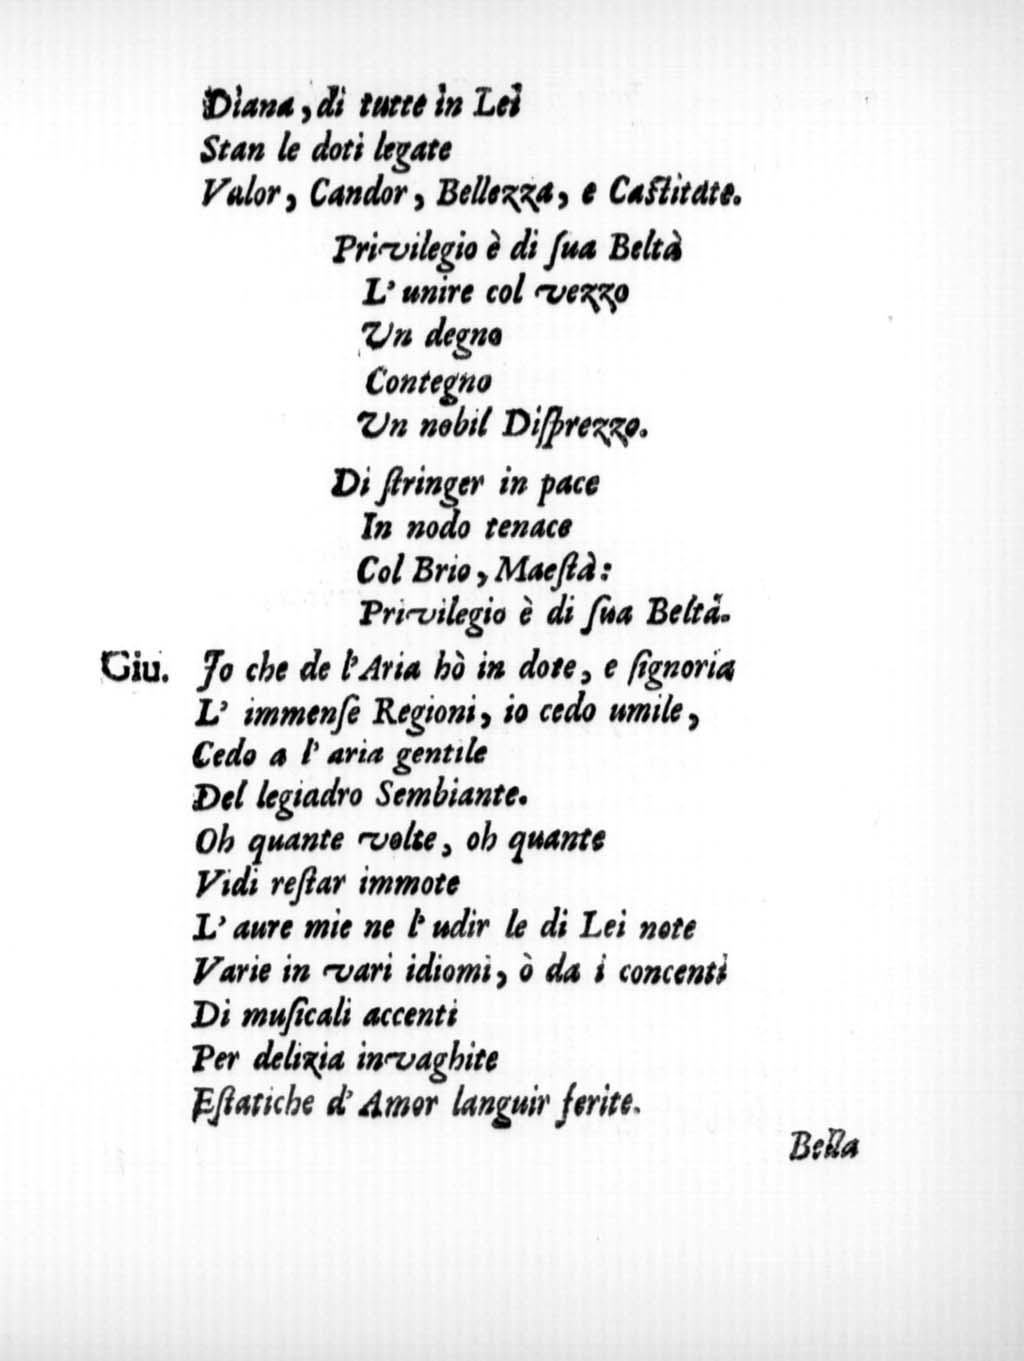 Diana, di tutte in Lei
Stan le doti legate
Valor, Candor, Bellezza, e Caſtitate.
Privilegio è di ſua Beltà
L' unire col vezzo
Un degno
Contegno
Un nobil Diſprezzo.
Di ſtringer in pace
In nodo tenace
Col Brio, Maeſtà:
Privilegio è di ſua Beltà.
Giu. Jo che de l'Aria hò in dote, e ſignoria
L' immenſe Regioni, io cedo umile,
Cedo a l' aria gentile
Del legiadro Sembiante.
Oh quante volte, oh quante
Vidi reſtar immote
L' aure mie ne l' udir le di Lei note
Varie in vari idiomi, ò da i concenti
Di muſicali accenti
Per delizia invaghite
Eſtatiche d' Amor languir ferite.
Bella